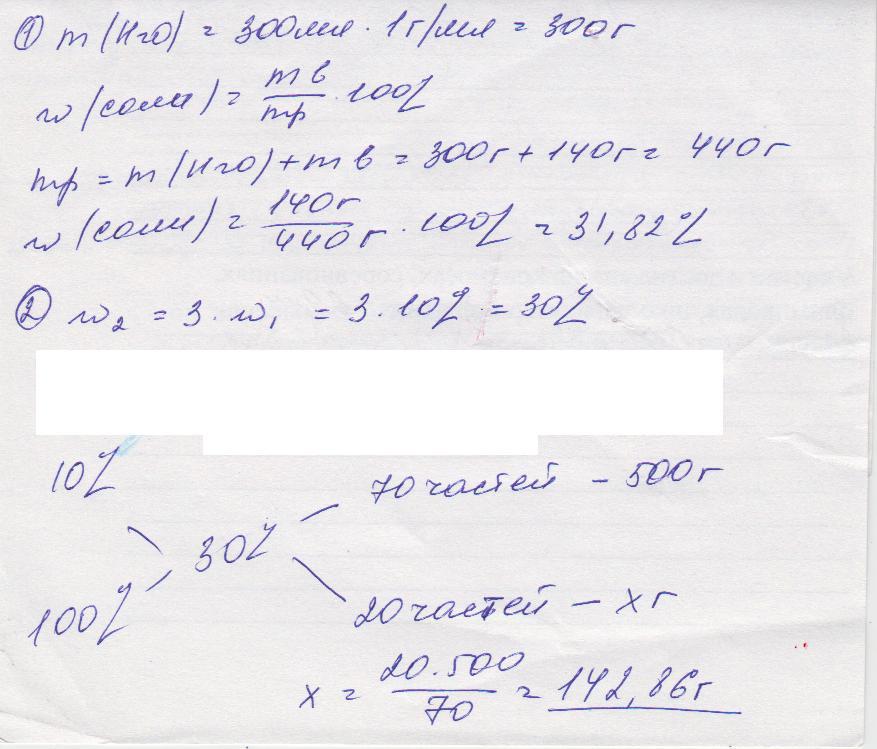 ① m(H2O) = 300мл · 1г/мл = 300г
w(соли) = mв/mр · 100%
mр = m(H2O) + mв = 300г + 140г = 440г
w(соли) = 140г/440г · 100% = 31,82%
② w₂ = 3 · w₁ = 3 · 10% = 30%
10%
70 частей – 500г
30%
100%
20 частей – x г
x = 20·500/70 = 142,86г